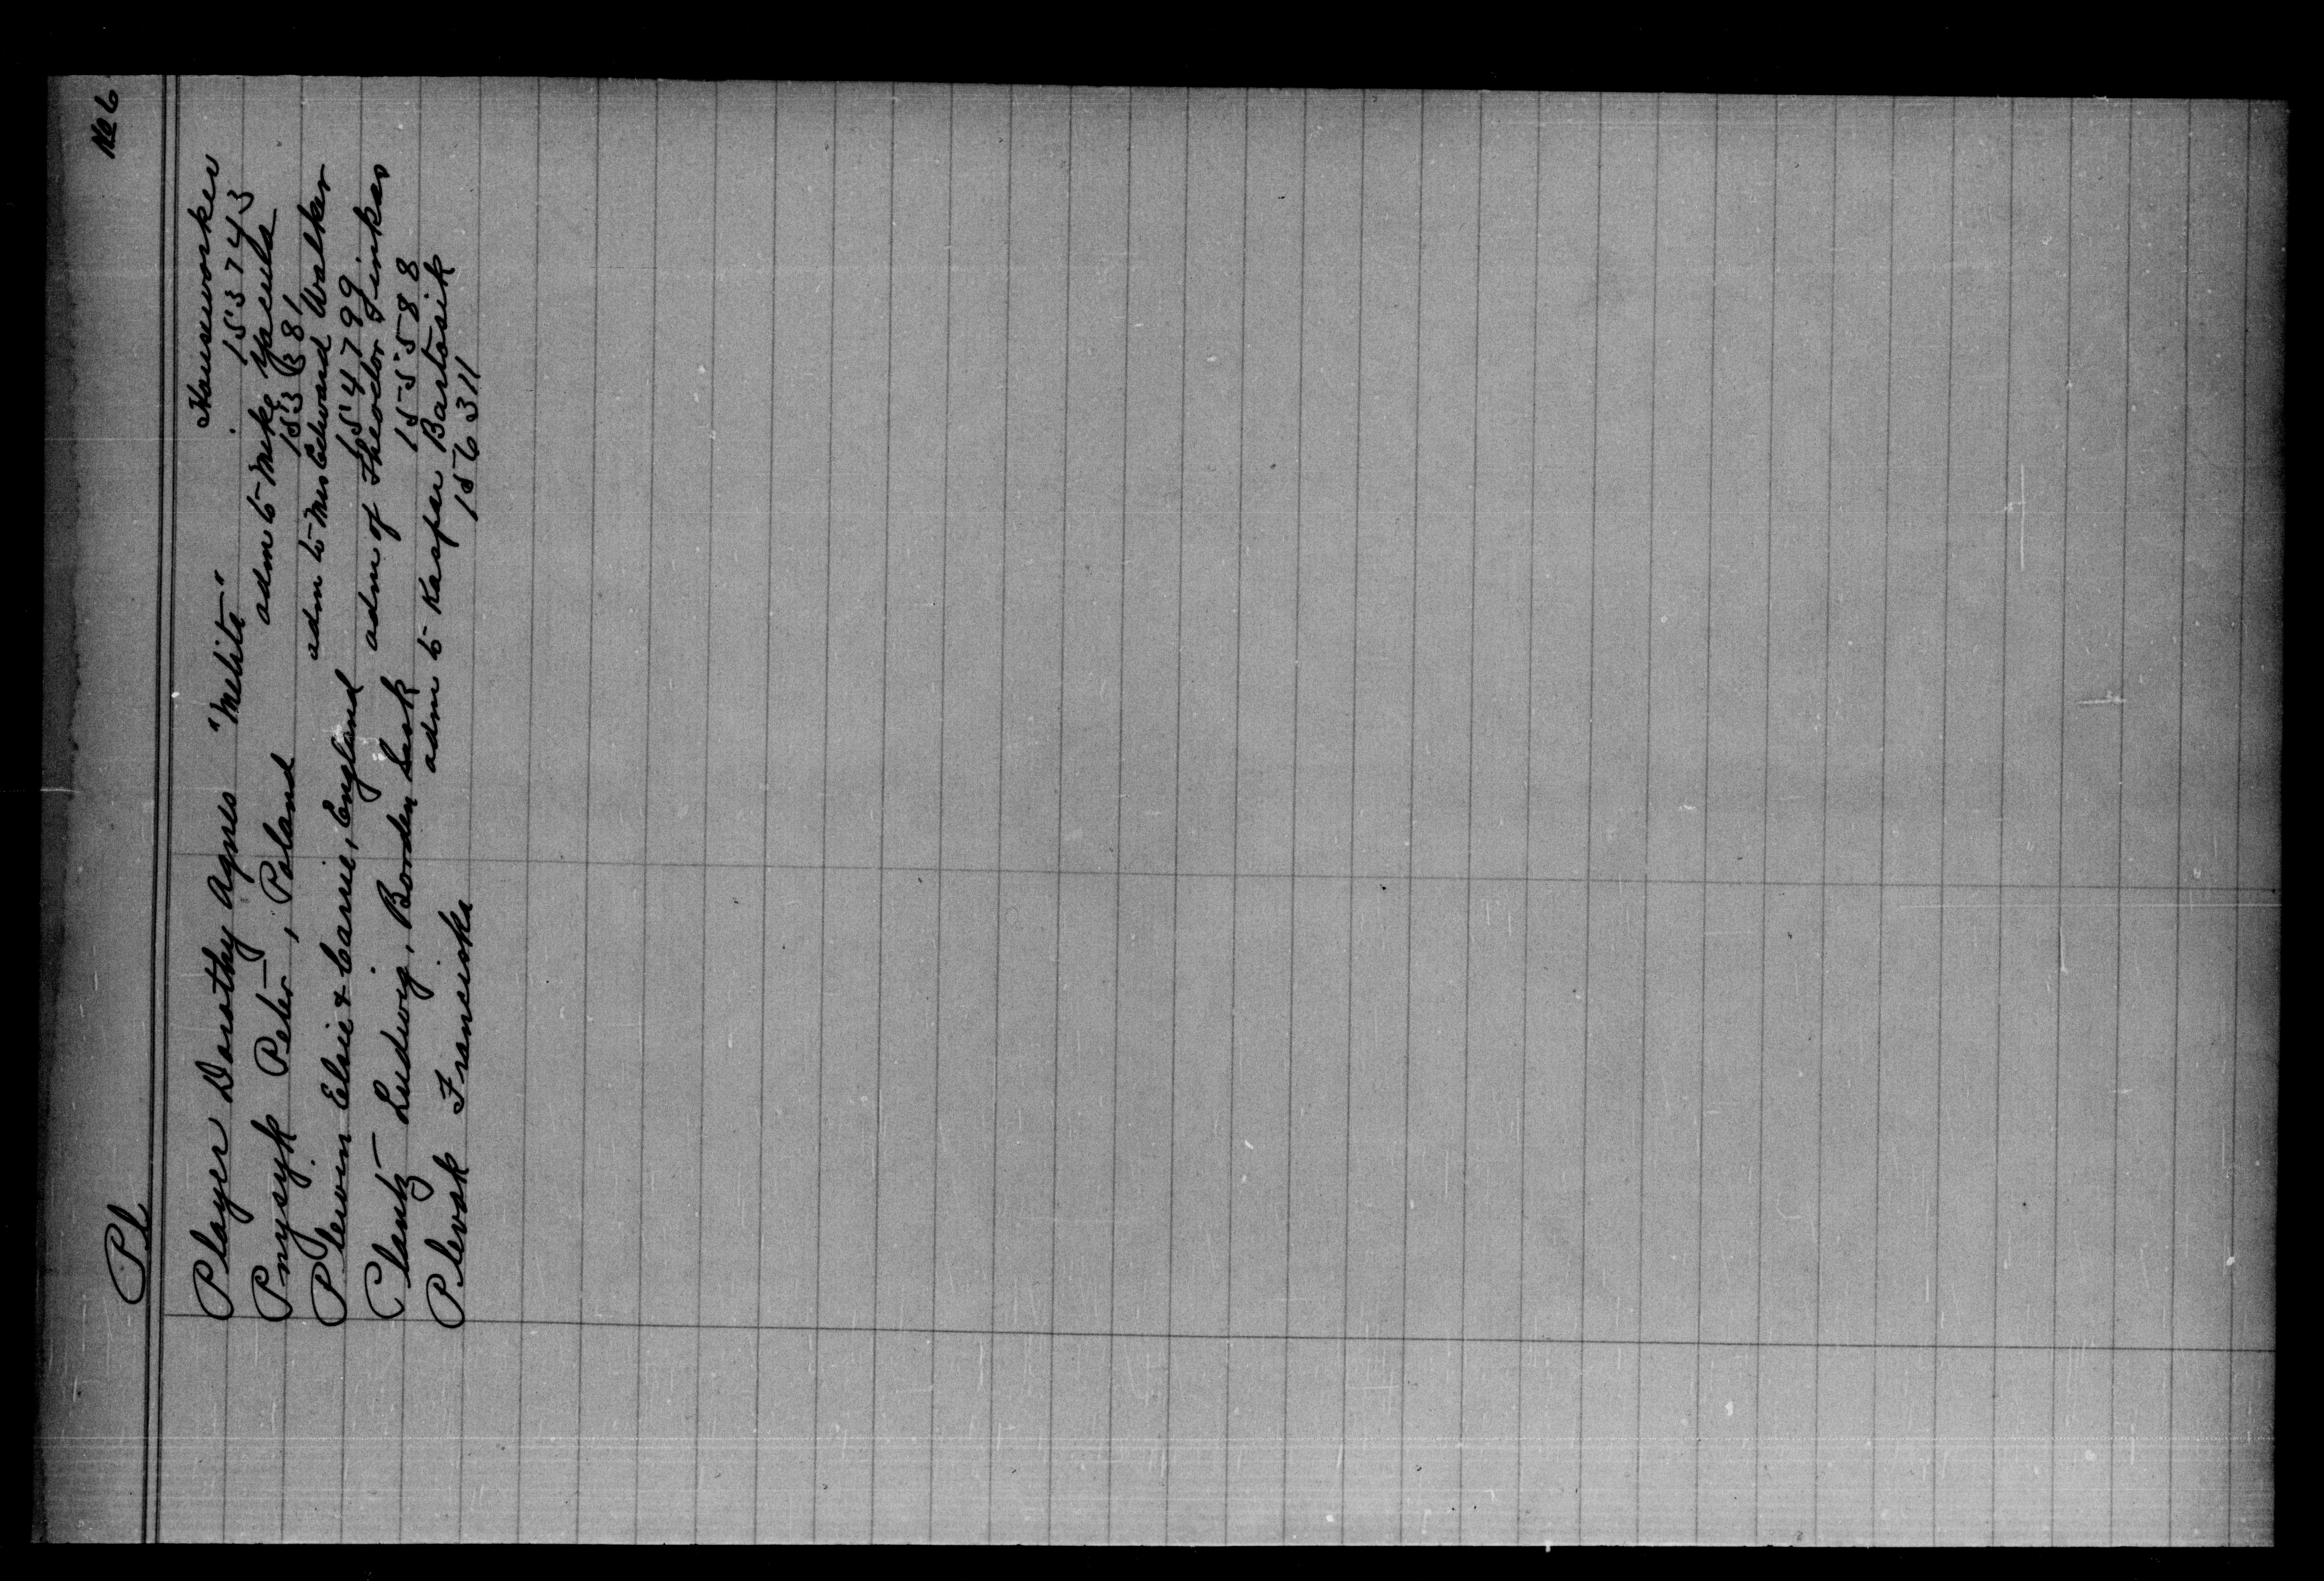 Pl No 6
Player Dorothy Agnes "Melita" Houseworker
153743
Pnysyk Peter, Poland adm to Mike Yacula
153381
Plewin Elsie & Carrie, England adm to Mrs Edward Walker
154799
Plantz Ludwig, Borden Sask adm of Theodor Finkas
155588
Plevak Franciska adm to Kasper Bartosik
156311